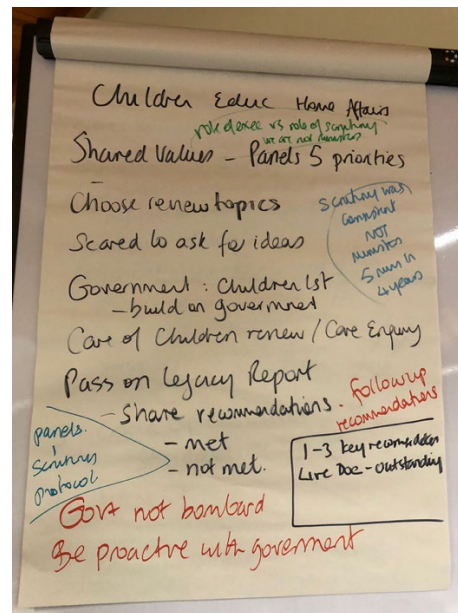 Children Educ Home Affairs
role of exec vs role of scrutiny
we are not ministers
Shared Values – Panels 5 priorities
–
Choose review topics
Scrutiny was
consistent
NOT
minister
5 mins in
4 years
Scared to ask for ideas
Government : Children 1st
– build on government
Care of Children review / Care Enquiry
Pass on Legacy Report
– Share recommendations
- Follow up
recommendations
– met
– not met.
panels.
Scrutiny
Protocol
1-3 key recommendations
Live Doc - outstanding
Govt not bombard
Be proactive with government